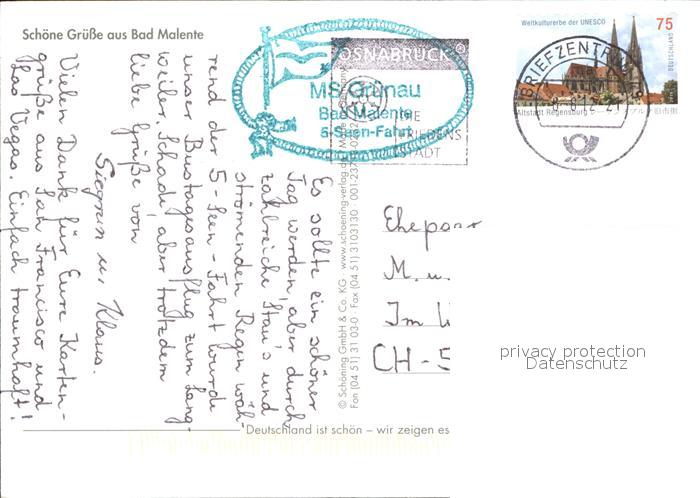 Schöne Grüße aus Bad Malente
Es sollte ein schöner
Tag werden, aber durch
zahlreiche Stau's und
strömenden Regen wäh-
rend der 5-Seen-Fahrt wurde
unser Bustagesausflug zum lang
weiler. Schade, aber trotzdem
liebe Grüße von
Siegrun u. Klaus.
Vielen Dank für Eure Karten-
grüße aus San Francisco und
Las Vegas. Einfach traumhaft!
MS Grünau
Bad Malente
5-Seen-Fahrt
OSNABRÜCK®
DIE
FRIEDENS
STADT
Weltkulturerbe der UNESCO
75
DEUTSCHLAND
Altstadt Regensburg
BRIEFZENTRUM
© Schöning GmbH & Co. KG · www.schoening-verlag.de
Fon (04 51) 31 03-0 · Fax (04 51) 3103130
Ehepaar
M. u.
Im
CH-5
privacy protection
Datenschutz
Deutschland ist schön – wir zeigen es